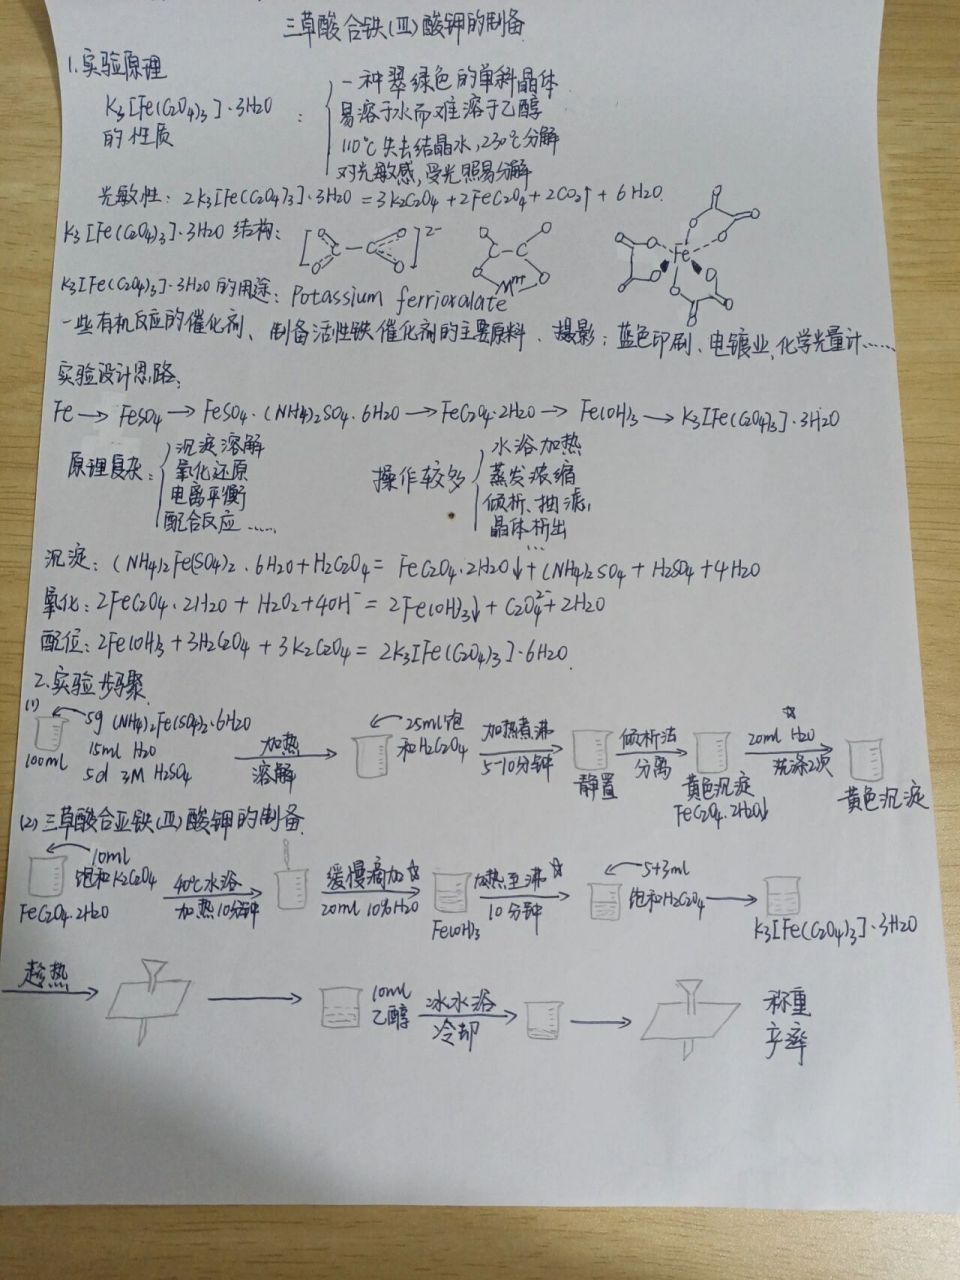 三草酸合铁(Ⅲ)酸钾的制备
1.实验原理
K3[Fe(C2O4)3]·3H2O
的性质
:
一种翠绿色的单斜晶体
易溶于水而难溶于乙醇
110℃失去结晶水,230℃分解
对光敏感,受光照易分解
光敏性: 2K3[Fe(C2O4)3]·3H2O = 3K2C2O4 + 2FeC2O4 + 2CO2↑ + 6H2O.
K3[Fe(C2O4)3]·3H2O 结构:
C C ]2-
C C
Mn+
Fe
K3[Fe(C2O4)3]·3H2O 的用途: Potassium ferrioxalate
一些有机反应的催化剂、制备活性铁催化剂的主要原料、摄影;蓝色印刷、电镀业,化学光量计……
实验设计思路:
Fe → FeSO4 → FeSO4·(NH4)2SO4·6H2O → FeC2O4·2H2O → Fe(OH)3 → K3[Fe(C2O4)3]·3H2O
原理复杂:
沉淀溶解
氧化还原
电离平衡
配合反应……
操作较多
水浴加热
蒸发浓缩
倾析、抽滤,
晶体析出
…
沉淀: (NH4)2Fe(SO4)2·6H2O + H2C2O4 = FeC2O4·2H2O↓ + (NH4)2SO4 + H2SO4 + 4H2O
氧化: 2FeC2O4·2H2O + H2O2 + 4OH- = 2Fe(OH)3↓ + C2O4 2- + 2H2O
配位: 2Fe(OH)3 + 3H2C2O4 + 3K2C2O4 = 2K3[Fe(C2O4)3]·6H2O.
2.实验步骤
(1)
5g (NH4)2Fe(SO4)2·6H2O
15ml H2O
5d 3M H2SO4
100ml
加热
溶解
25ml饱
和H2C2O4
加热煮沸
5-10分钟
静置
倾析法
分离
黄色沉淀
FeC2O4·2H2O↓
☆
20ml H2O
洗涤2次
黄色沉淀
(2)三草酸合亚铁(Ⅲ)酸钾的制备.
10ml
饱和K2C2O4
FeC2O4·2H2O
40℃水浴
加热10分钟
缓慢滴加☆
20ml 10%H2O
Fe(OH)3
加热至沸☆
10分钟
5+3ml
饱和H2C2O4
K3[Fe(C2O4)3]·3H2O
趁热
10ml
乙醇
冰水浴
冷却
称重
产率